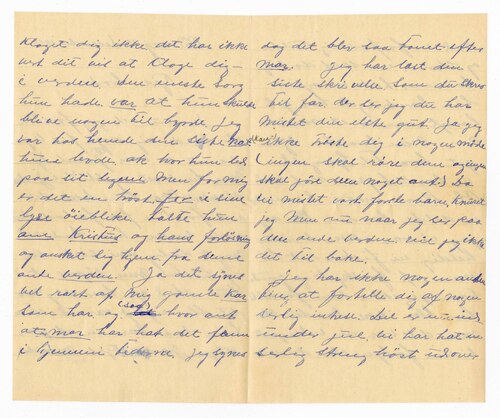 klaget dig ikke det har ikke
vert dit vis at klage dig -
i verden den eneste Sorg
hun hade var at hun skulde
bleve nogen til byrde jeg
var hos hende den siste nat
hun levde, ak hvor hun led
paa sit legeme Men for mig
er det en tröst for i sine
lyse öieblikke talte hun
om Kristus og hans forlösning
og önsket sig hjem fra denne
onde verden. Ja det synes
vel rart af mig gamle kar
som har og saa hvor ont
at mor har hat det faum
i hjemmen jeg synes
dag det blev saa tomt efter
mor. jeg har läst den
siste skrivelse som du skrev
til far, der ser jeg du har
mistet din elste gut. Ja jeg
skal ikke tröste dig i nogen möde
ingen skal röre dem og ingen
skal göre dem noget ondt Da
vi mistet vort förste barn,
jeg Men nu naar jeg ser paa
den onde verden vil jeg ikke
det til bake.
jeg har ikke nogen
at fortelle dig af nogen
serlig Det er nu
under jul, vi har hat en
serlig streng höst udover